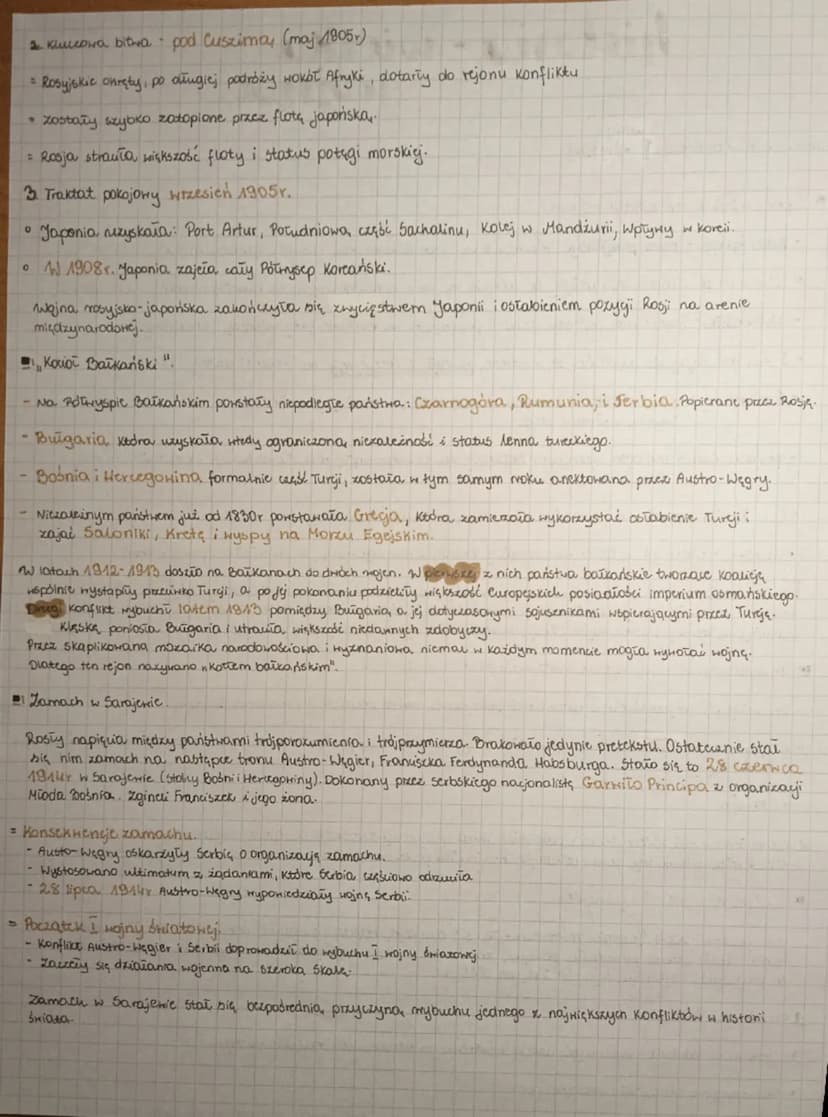 2. Kluczowa bitwa - pod Cuszimą (maj 1905r)
= Rosyjskie okręty, po długiej podróży wokół Afryki, dotarły do rejonu konfliktu
• zostały szybko zatopione przez flotę japońską.
= Rosja straciła większość floty i status potęgi morskiej.
3. Traktat pokojowy wrzesień 1905r.
° Japonia uzyskała: Port Artur, Południową część Sachalinu, Kolej w Mandżurii, Wpływy w Korei.
° W 1908r. Japonia zajęła cały Półwysep Koreański.
Wojna rosyjsko-japońska zakończyła się zwycięstwem Japonii i osłabieniem pozycji Rosji na arenie
międzynarodowej.
"Kocioł Bałkański".
- Na Półwyspie Bałkańskim powstały niepodległe państwa: Czarnogóra, Rumunia, i Serbia. Popierane przez Rosję.
- Bułgaria, która uzyskała wtedy ograniczoną niezależność i status lenna tureckiego.
- Bośnia i Hercegowina formalnie część Turcji, została w tym samym roku anektowana przez Austro-Węgry.
- Niezależnym państwem już od 1830r pozostawała Grecja, która zamierzała wykorzystać osłabienie Turcji i
zająć Saloniki, Kretę i wyspy na Morzu Egejskim.
W latach 1912-1913 doszło na Bałkanach do dwóch wojen. W pierwszej z nich państwa bałkańskie tworząc koalicję
wspólnie wystąpiły przeciwko Turcji, a po jej pokonaniu podzieliły większość Europejskich posiadłości imperium osmańskiego.
Drugi konflikt wybuchł latem 1913 pomiędzy Bułgarią, a jej dotychczasowymi sojusznikami wspierającymi przez Turcję.
Klęskę poniosła Bułgaria i utraciła większość niedawnych zdobyczy.
Przez skąplikowaną mozaikę narodowościową i wyznaniową niemal w każdym momencie mogła wywołać wojnę.
Dlatego ten rejon nazywano „Kotłem bałkańskim".
Zamach w Sarajewie.
Rosły napięcia między państwami trójporozumienia i trójprzymierza. Brakowało jedynie pretekstu. Ostatecznie stał
się nim zamach na następcę tronu Austro-Węgier, Franciszka Ferdynanda Habsburga. Stało się to 28 czerwca
1914r w Sarajewie (stolicy Bośni i Hercegowiny). Dokonany przez serbskiego nacjonalistę Gawriło Principa z organizacji
Młoda Bośnia. Zginęli Franciszek i jego żona.
= Konsekwencje zamachu.
- Austo-Węgry oskarżyły Serbię o organizację zamachu.
- Wystosowano ultimatum z żądaniami, które Serbia częściowo odrzuciła
- 28 lipca 1914r Austro-Węgry wypowiedziały wojnę Serbii.
= Początek I wojny światowej.
- Konflikt Austro-Węgier i Serbii doprowadził do wybuchu I wojny światowej
- Zaczęły się działania wojenne na szeroką skalę.
Zamach w Sarajewie stał się bezpośrednią przyczyną wybuchu jednego z największych konfliktów w historii
świata.